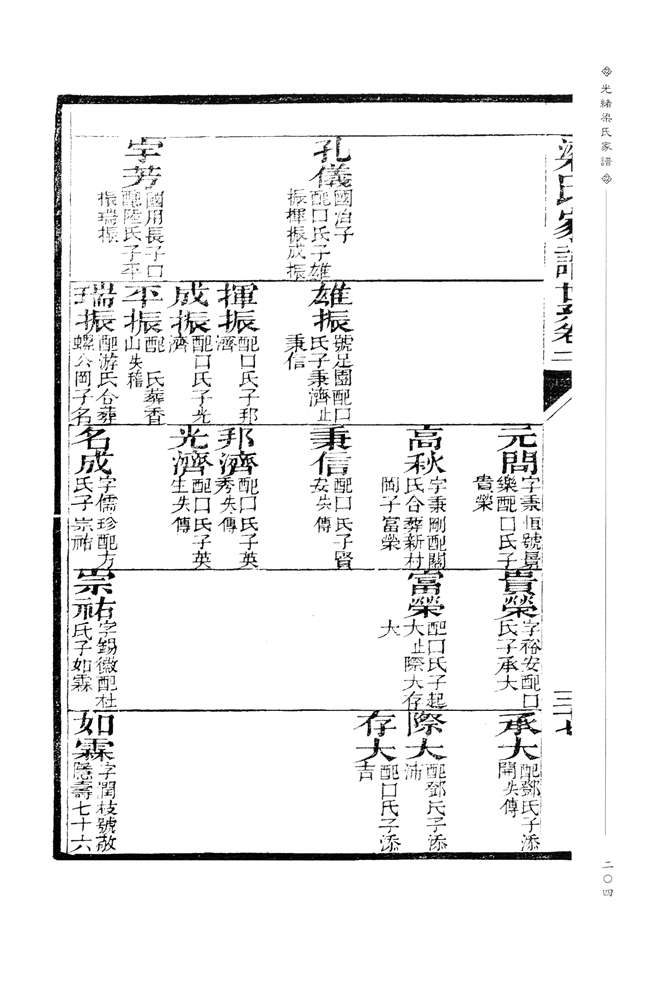 光緒梁氏家譜
二〇四
梁氏家譜世系卷二
三十七
孔儀
國冶子
配口氏子雄
振揮振成振
宇芳
國用長子口
配陸氏子平
振瑞振
雄振
號足園配口
氏子秉濟止
秉信
揮振
配口氏子邦
濟
成振
配口氏子光
濟
平振
配 氏葬香
山失稽
瑞振
配游氏合葬
螺公岡子名
元間
字秉恒號景
樂配口氏子
貴榮
高秋
字秉剛配關
氏合葬新村
岡子富榮
秉信
配口氏子賢
安失傳
邦濟
配口氏子英
秀失傳
光濟
配口氏子英
生失傳
名成
字儒珍配方
氏子宗祐
貴榮
字裕安配口
氏子承大
富榮
配口氏子起
大止際大存
大
宗祐
字錫徽配杜
氏子如霖
承大
配鄧氏子添
開失傳
際大
配鄧氏子添
沛
存大
配口氏子添
吉
如霖
字閏枝號敬
隱壽七十六